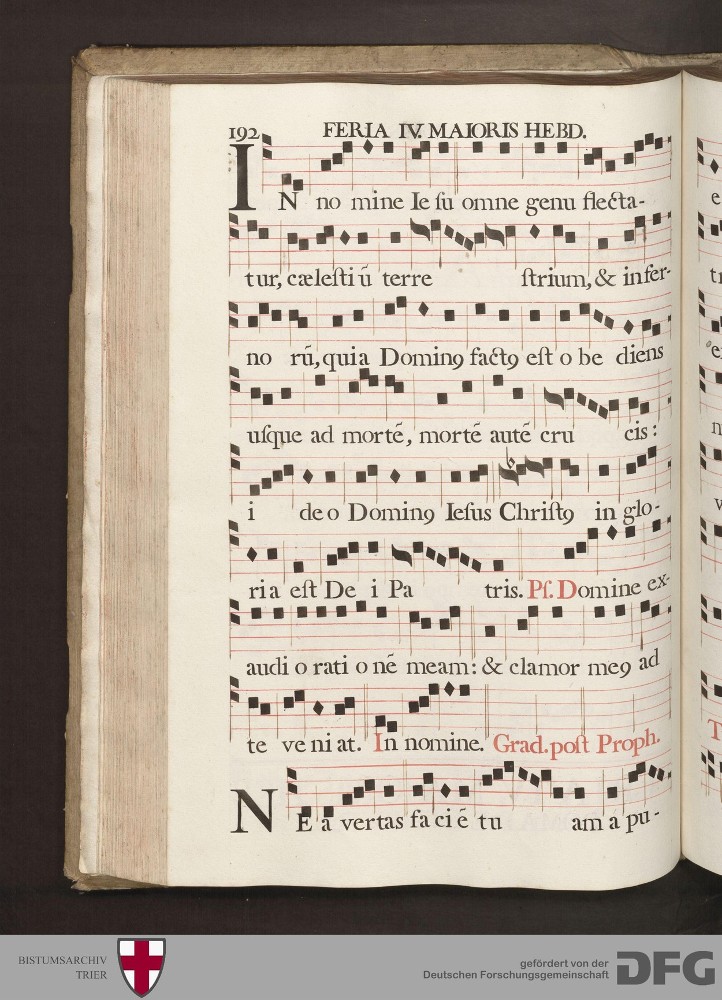 192 FERIA IV. MAIORIS HEBD.
IN no mine Ie su omne genu flecta-
tur, cælesti ū terre strium, & in fer-
no rū, quia Dominꝯ factꝯ est o be diens
usque ad mortē, mortē autē cru cis:
i deo Dominꝯ Iesus Christꝯ in glo-
ria est De i Pa tris. Ps. Domine ex-
audi o rati o nē meam: & clamor meꝯ ad
te ve ni at. In nomine. Grad. post Proph.
NE a vertas fa ci ē tu am a pu-
e
tr
n
v
T
BISTUMSARCHIV
TRIER
gefördert von der
Deutschen Forschungsgemeinschaft
DFG